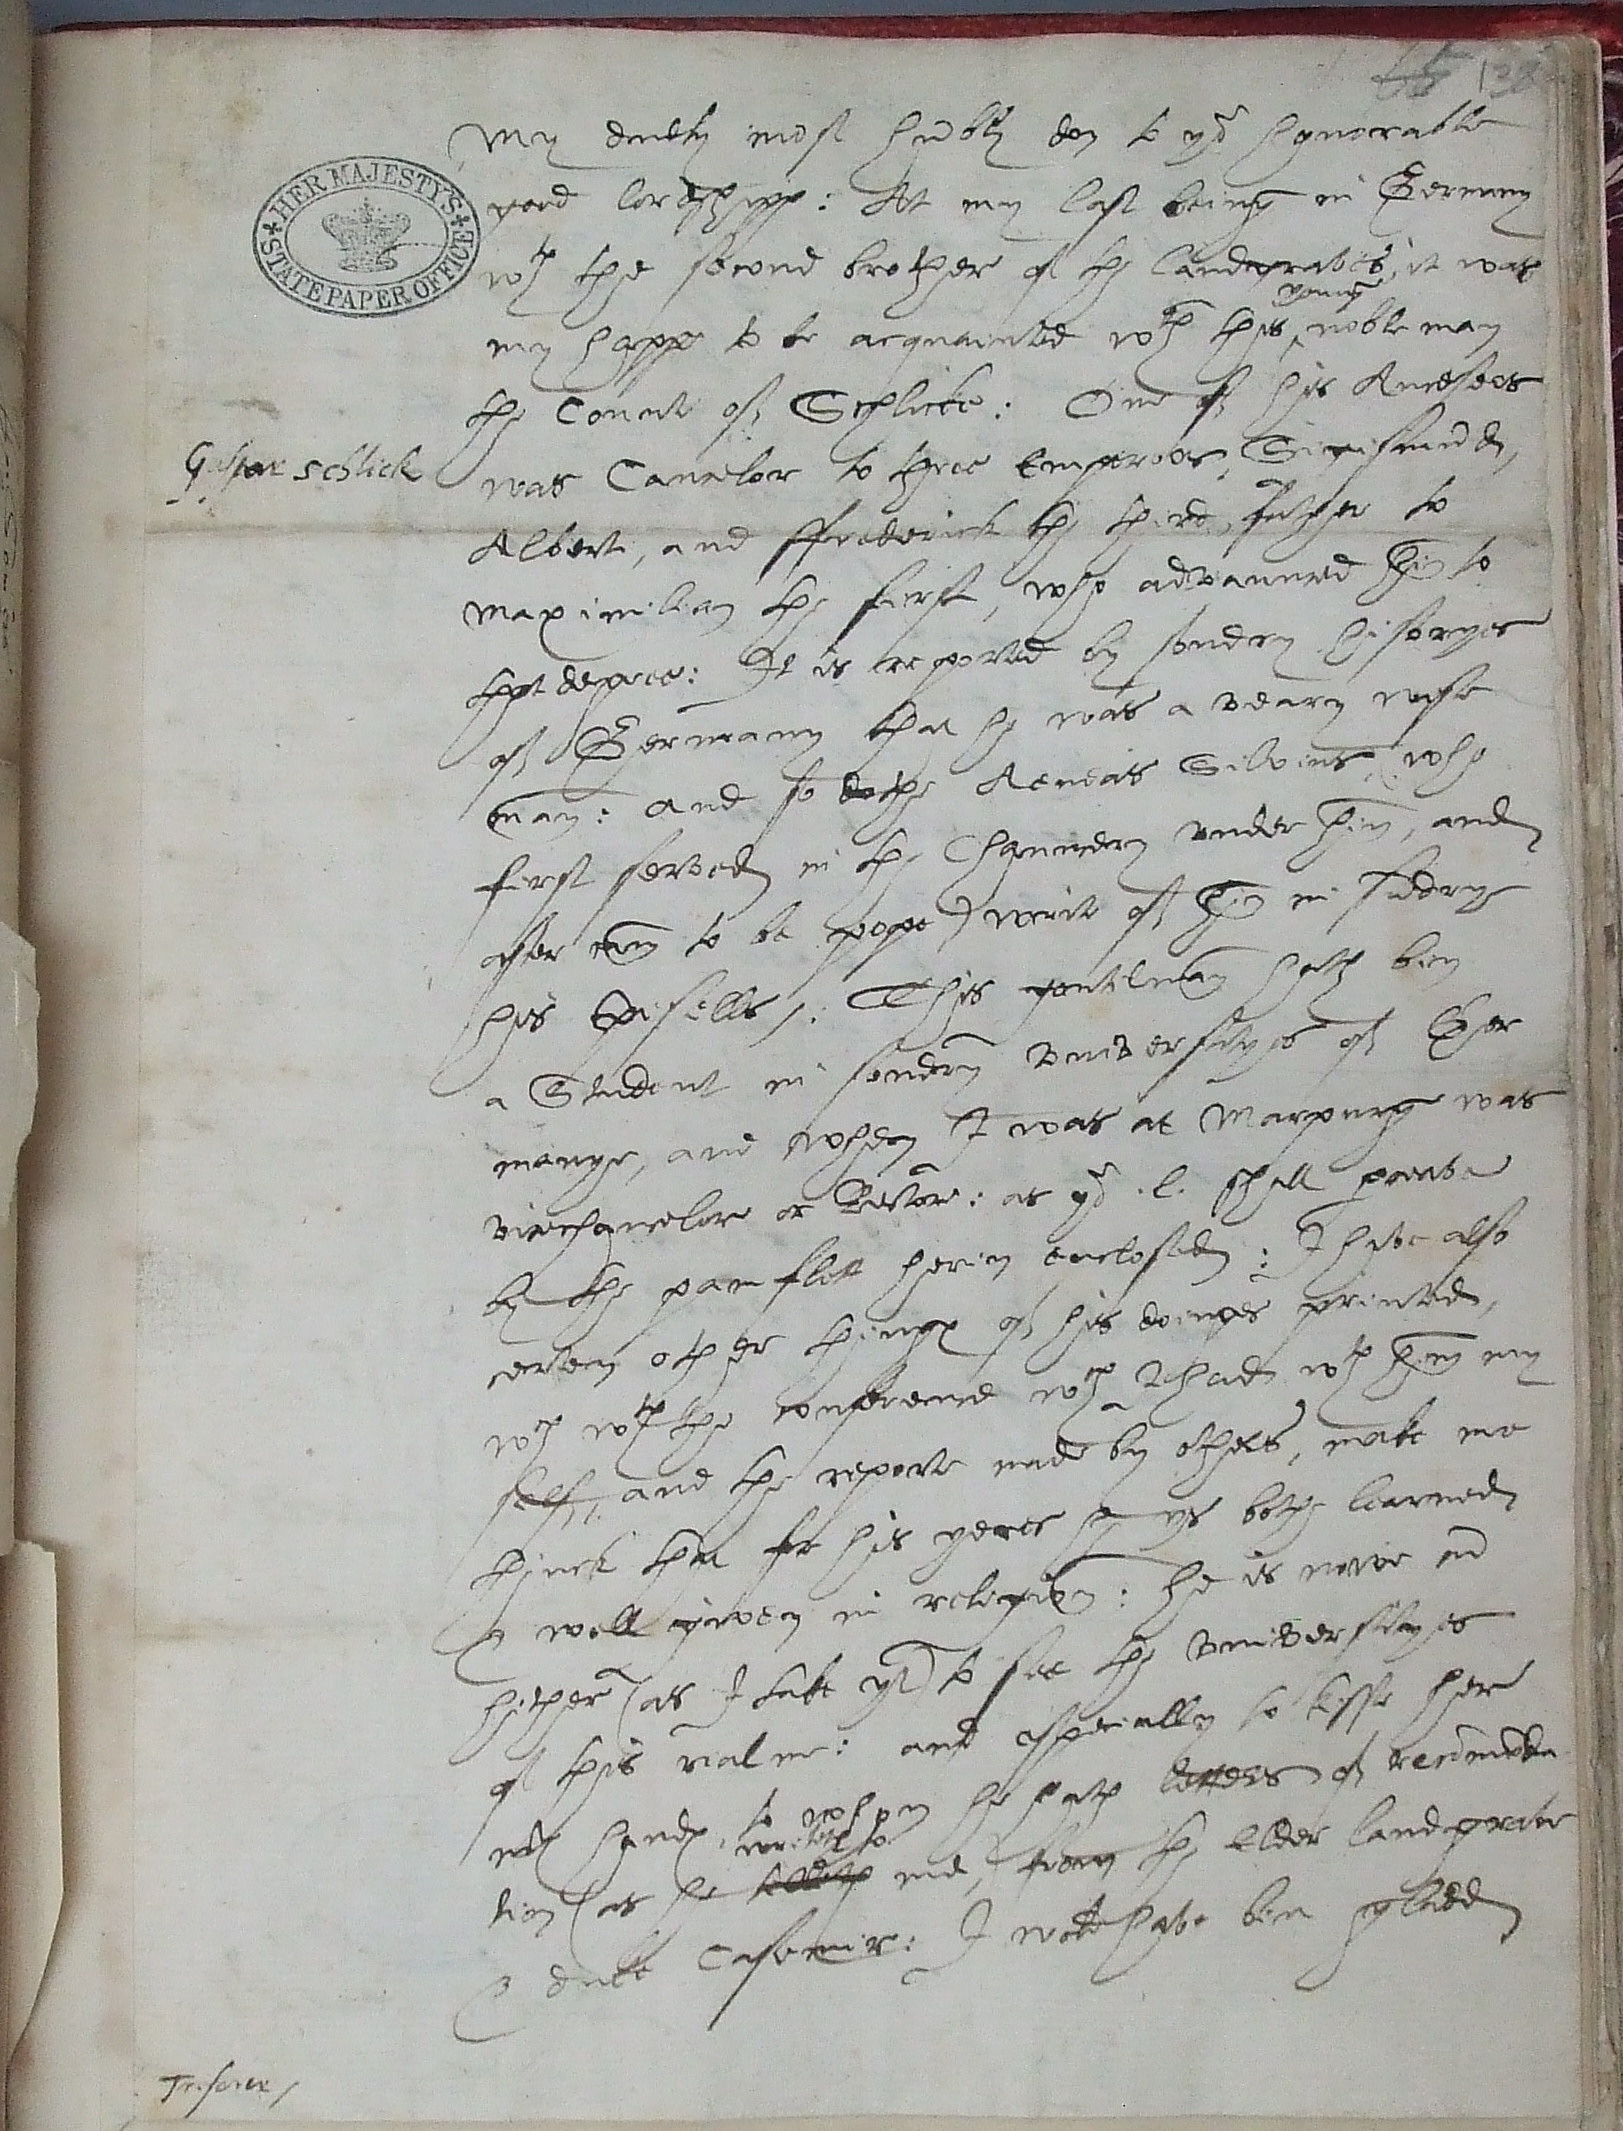 138
HER MAJESTY'S STATE PAPER OFFICE
My duety most hūbly don to yor honorable
good lordshipp: At my last being in Germany
wth the second brother of the landgraves, it was
my happ to be acquainted wth this young noble man
the Count of Schlicke: One of his Ancestors
Gaspar Schlick
was Cancelor to three Emperors, Sigismūd,
Albert, and ffrederick the third, father to
Maximilian the first, who advaunced hī to
that degree: It is reported by sondry historyes
of Germany that he was a veary wise
man: and so dothe Aeneas Silvius, (who
first served in the Chauncery under him, and
after cam to be pope) write of hī in sūdry
his Epistells: This gentilman hath bin
a Student in sondry Universityes of Ger
manye, and when I was at Marpurg was
vicechancelor or Rector: as yor .l. shall perceive
by the pamflett herin enclosed: I have also
certen other things of his doinges printed,
wch wth the conference wch I had wth him my
self, and the reporte made by others, make me
thinck that for his yeres he ys bothe learned
& well given in religion: he is nowe cū
hither (as I take yt) to see the universityes
of this realme: and especially to kisse her
mts hands, to whom he hath letters of recōmēda
tion (as he writeth to me,) from the Elder landgrave
& duke Casemir: I wold have bin gladd
Tresorer /